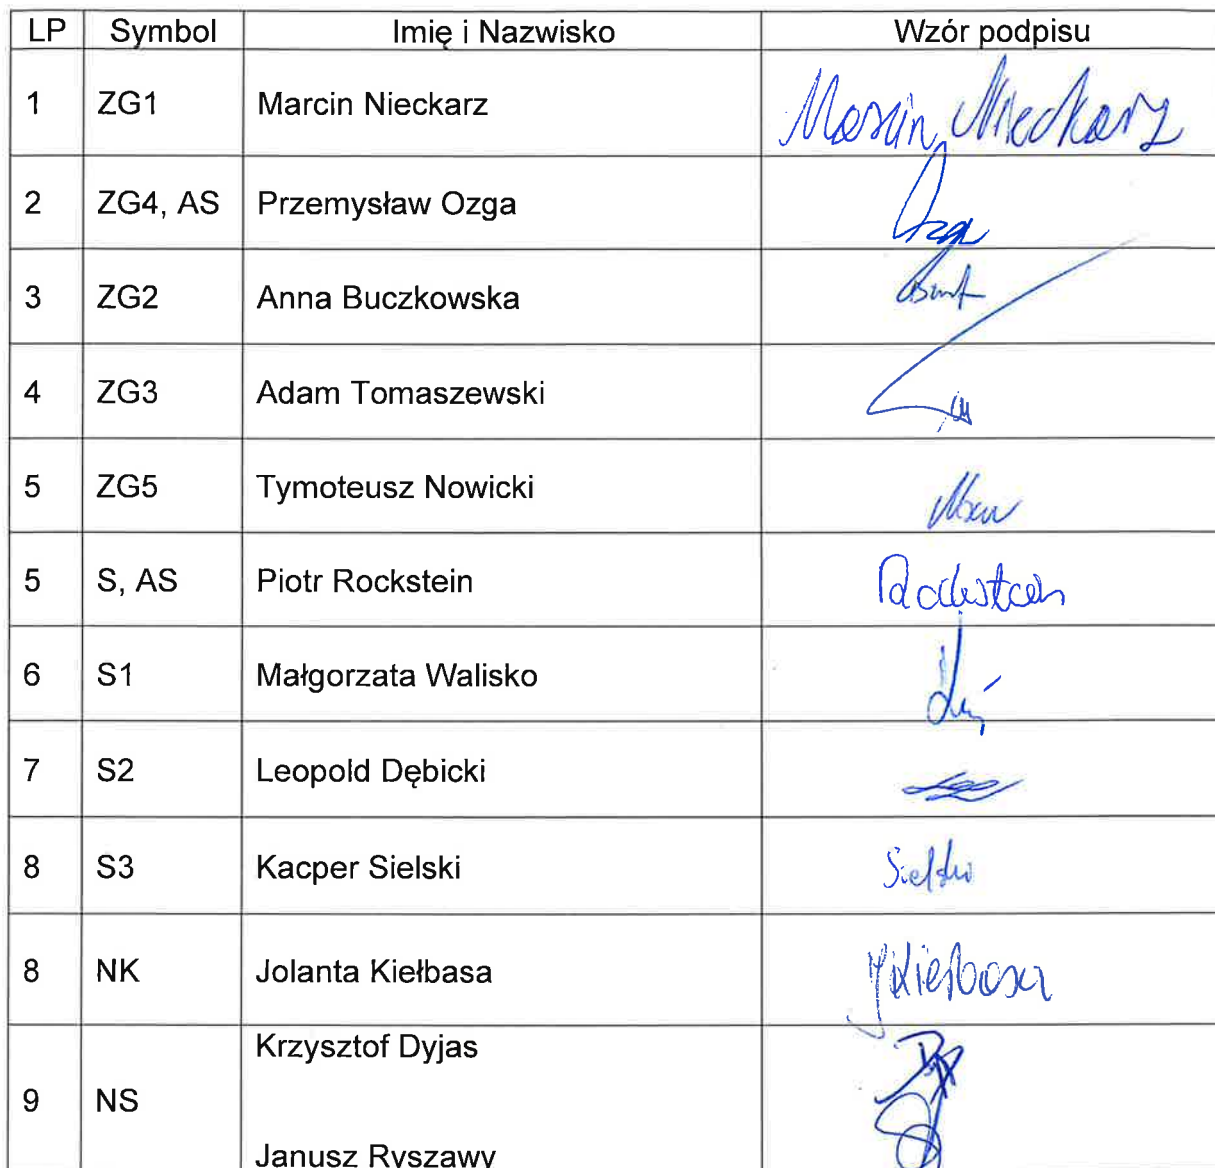 LP Symbol Imię i Nazwisko Wzór podpisu
1 ZG1 Marcin Nieckarz Marcin Nieckarz
2 ZG4, AS Przemysław Ozga Ozga
3 ZG2 Anna Buczkowska
4 ZG3 Adam Tomaszewski
5 ZG5 Tymoteusz Nowicki
5 S, AS Piotr Rockstein Rockstein
6 S1 Małgorzata Walisko
7 S2 Leopold Dębicki
8 S3 Kacper Sielski Sielski
8 NK Jolanta Kiełbasa JKiełbasa
Krzysztof Dyjas
9 NS
Janusz Ryszawy